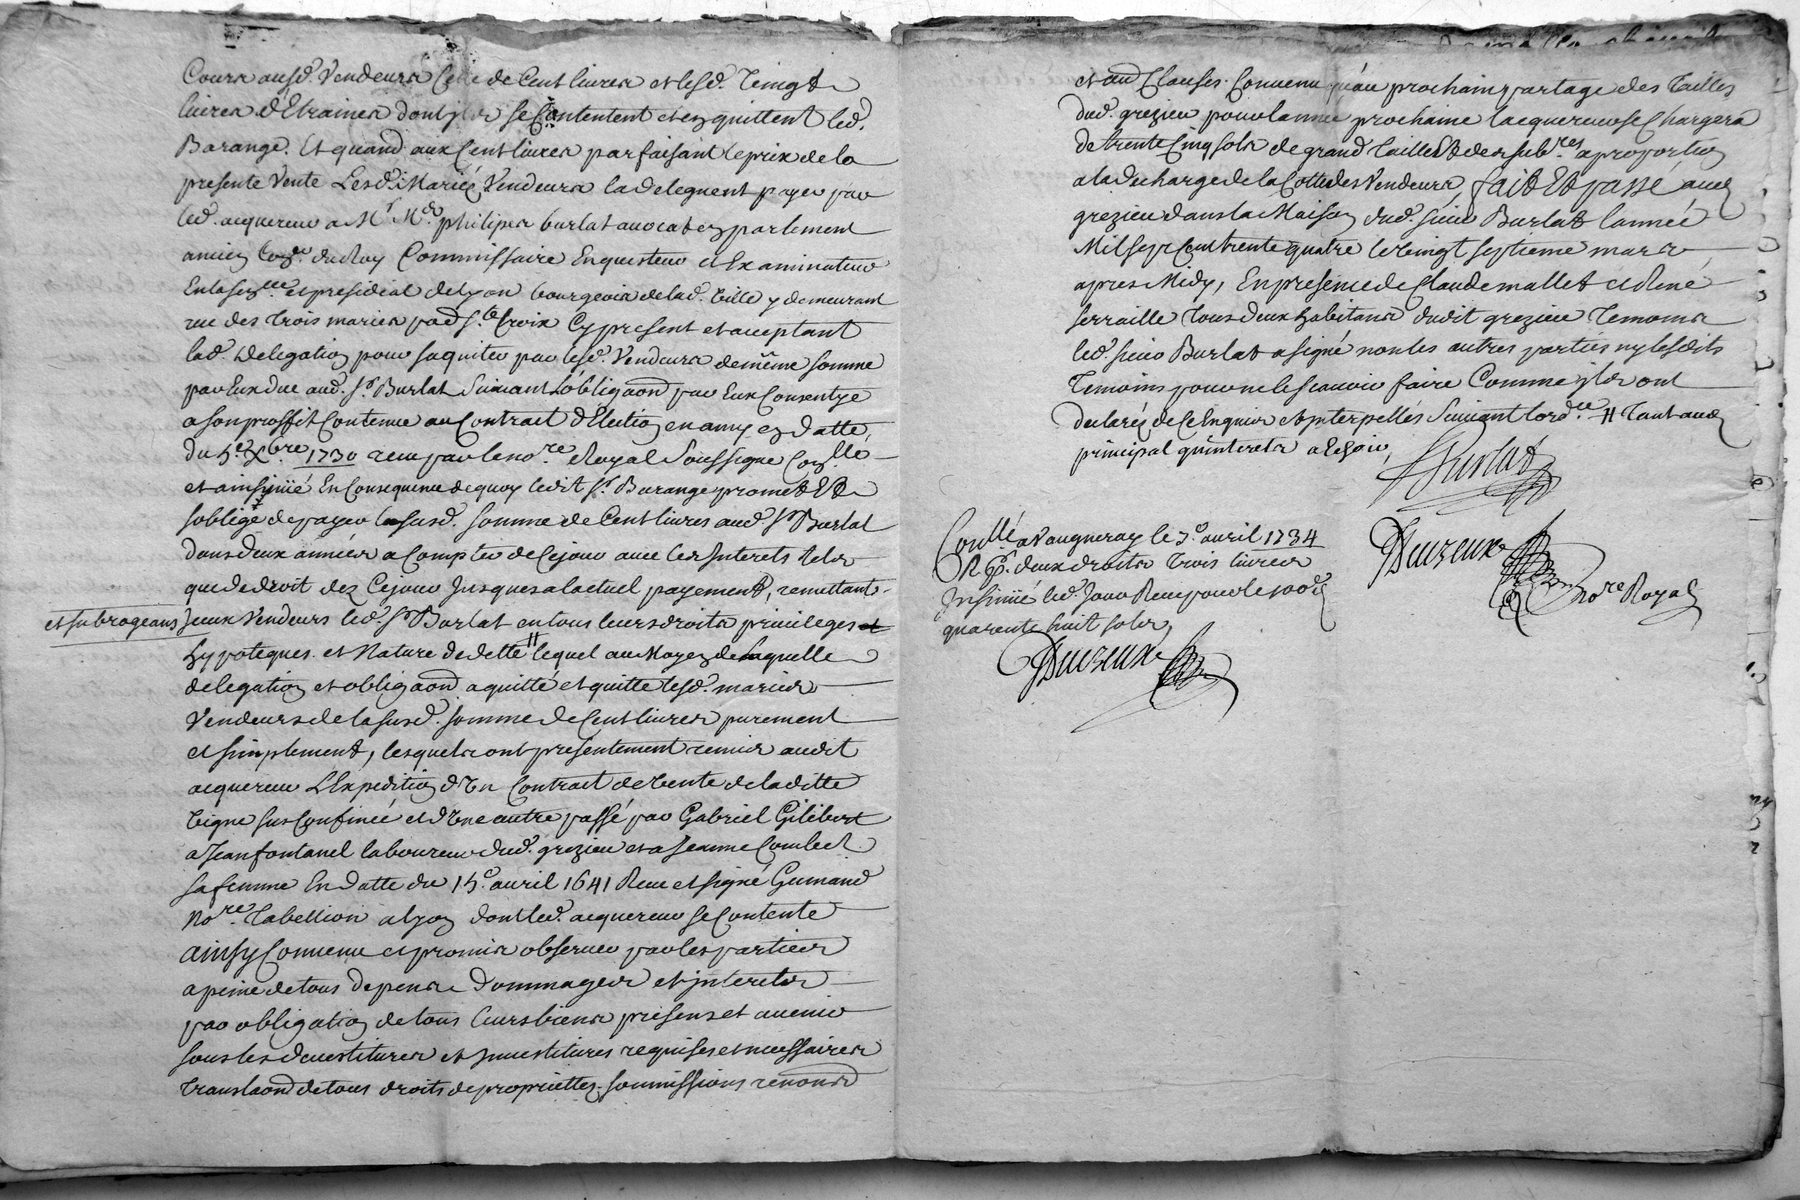 Cours ausd. Vendeurs Celle de Cent livres et lesd. Vingt
livres d'Etraines dont ils se Contentent et en quittent led.
Barange. Et quand aux Cent livres parfaisant le prix de la
presente Vente Lesd. Mariéz Vendeurs la deleguent payer par
led. acquereur a Mr. Me. philipes burlat avocat en parlement
ancien du Roy Commissaire Enquesteur et Examinateur
En la Senee. et presidial de Lyon bourgeois de lad. Ville y demeurant
rue des trois maries psse. Ste. Croix Cy present et acceptant
lad. Delegation pour saquiter par lesd. Vendeurs de même somme
par Eux due aud. Sr. Burlat Suivant L'obligaon par Eux Consentye
a son proffit Contenue au Contrat d'Election en amy en datte
du 5e Xbre 1730 receu par le nore. Royal Soussigne Conllé
et insinüé En Consequence de quoy ledit Sr. Barange promet Et
s'oblige de payer la susd. somme de Cent livres aud. Sr Burlat
dans deux années a Compter de Cejour avec les Interets tels
que de droit dez Cejour Jusques a lactuel payement, remettants
et subrogeans Iceux Vendeurs led. Sr Burlat en tous leurs droits privileges et
hypoteques et Nature de dette # lequel au Moyen de laquelle
delegation et obligaon a quitté et quitte lesd. maries
Vendeurs de la susd. somme de Cent livres purement
et simplement, lesquels ont presentement remis audit
acquereur L'Expedition d'Un Contrat de vente de laditte
Vigne sus Confinée et d'Une autre passé par Gabriel Gilibert
a Jean fontanel laboureur dud. grezieu et a Jeanne Combet
sa femme En datte du 15e. avril 1641 Receu et signé Guinand
Nore. Tabellion a lyon dont led. acquereur se Contente
ainsy Convenu et promis observer par les parties
a peine de tous depens Dommages et interets
par obligation de tous leurs biens presens et avenir
sous les devestitures et Investitures requises et necessaires
translaond de tous droits de proprietés soumissions renond
et aud Clauses. Convenu qu'au prochain partage des Tailles
dud. grezieu pour lannée prochaine lacquereur se Chargera
de trente Cinq sols de grand Taille Et des subres. a proportion
a la decharge de la Cotte des Vendeurs, fait Et passé aud
grezieu dans la Maison dud. sieur Burlat lannée
Mil sept Cent trente quatre le vingt septieme mars
apres Midy, En presence de Claude mallet et René
serraille tous deux habitans dudit grezieu Temoins
led. sieur Burlat a signé non les autres parties ny lesdits
Temoins pour ne le scavoir faire Comme ils ont
declaréz de Ce Enquis et interpellés Suivant lordce. # Tant au
principal qu'interets a Echoir,
Burlat
Conllé a Vaugneray le 7e. avril 1734
R. pr. deux droits Trois livres
Insinüé led. Jour Receu pour le 100e.
quarente huit sols,
Dleuzeux
Dleuzeux
nore Royal